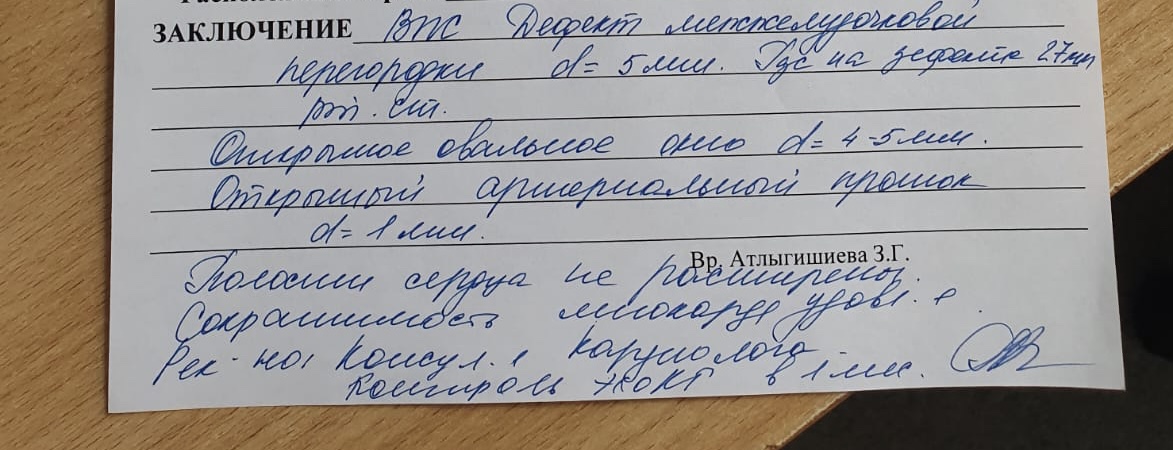 ЗАКЛЮЧЕНИЕ ВПС Дефект межжелудочковой
перегородки d= 5мм. Гдс на дефекте 27мм
рт.ст.
Открытое овальное окно d= 4-5мм.
Открытый артериальный проток
d= 1мм.
Вр. Атлыгишиева З.Г.
Полости сердца не расширены.
Сократимость миокарда удовл.
Рек-но: Консул. кардиолога
Контроль ЭХОКГ в 1 мес.